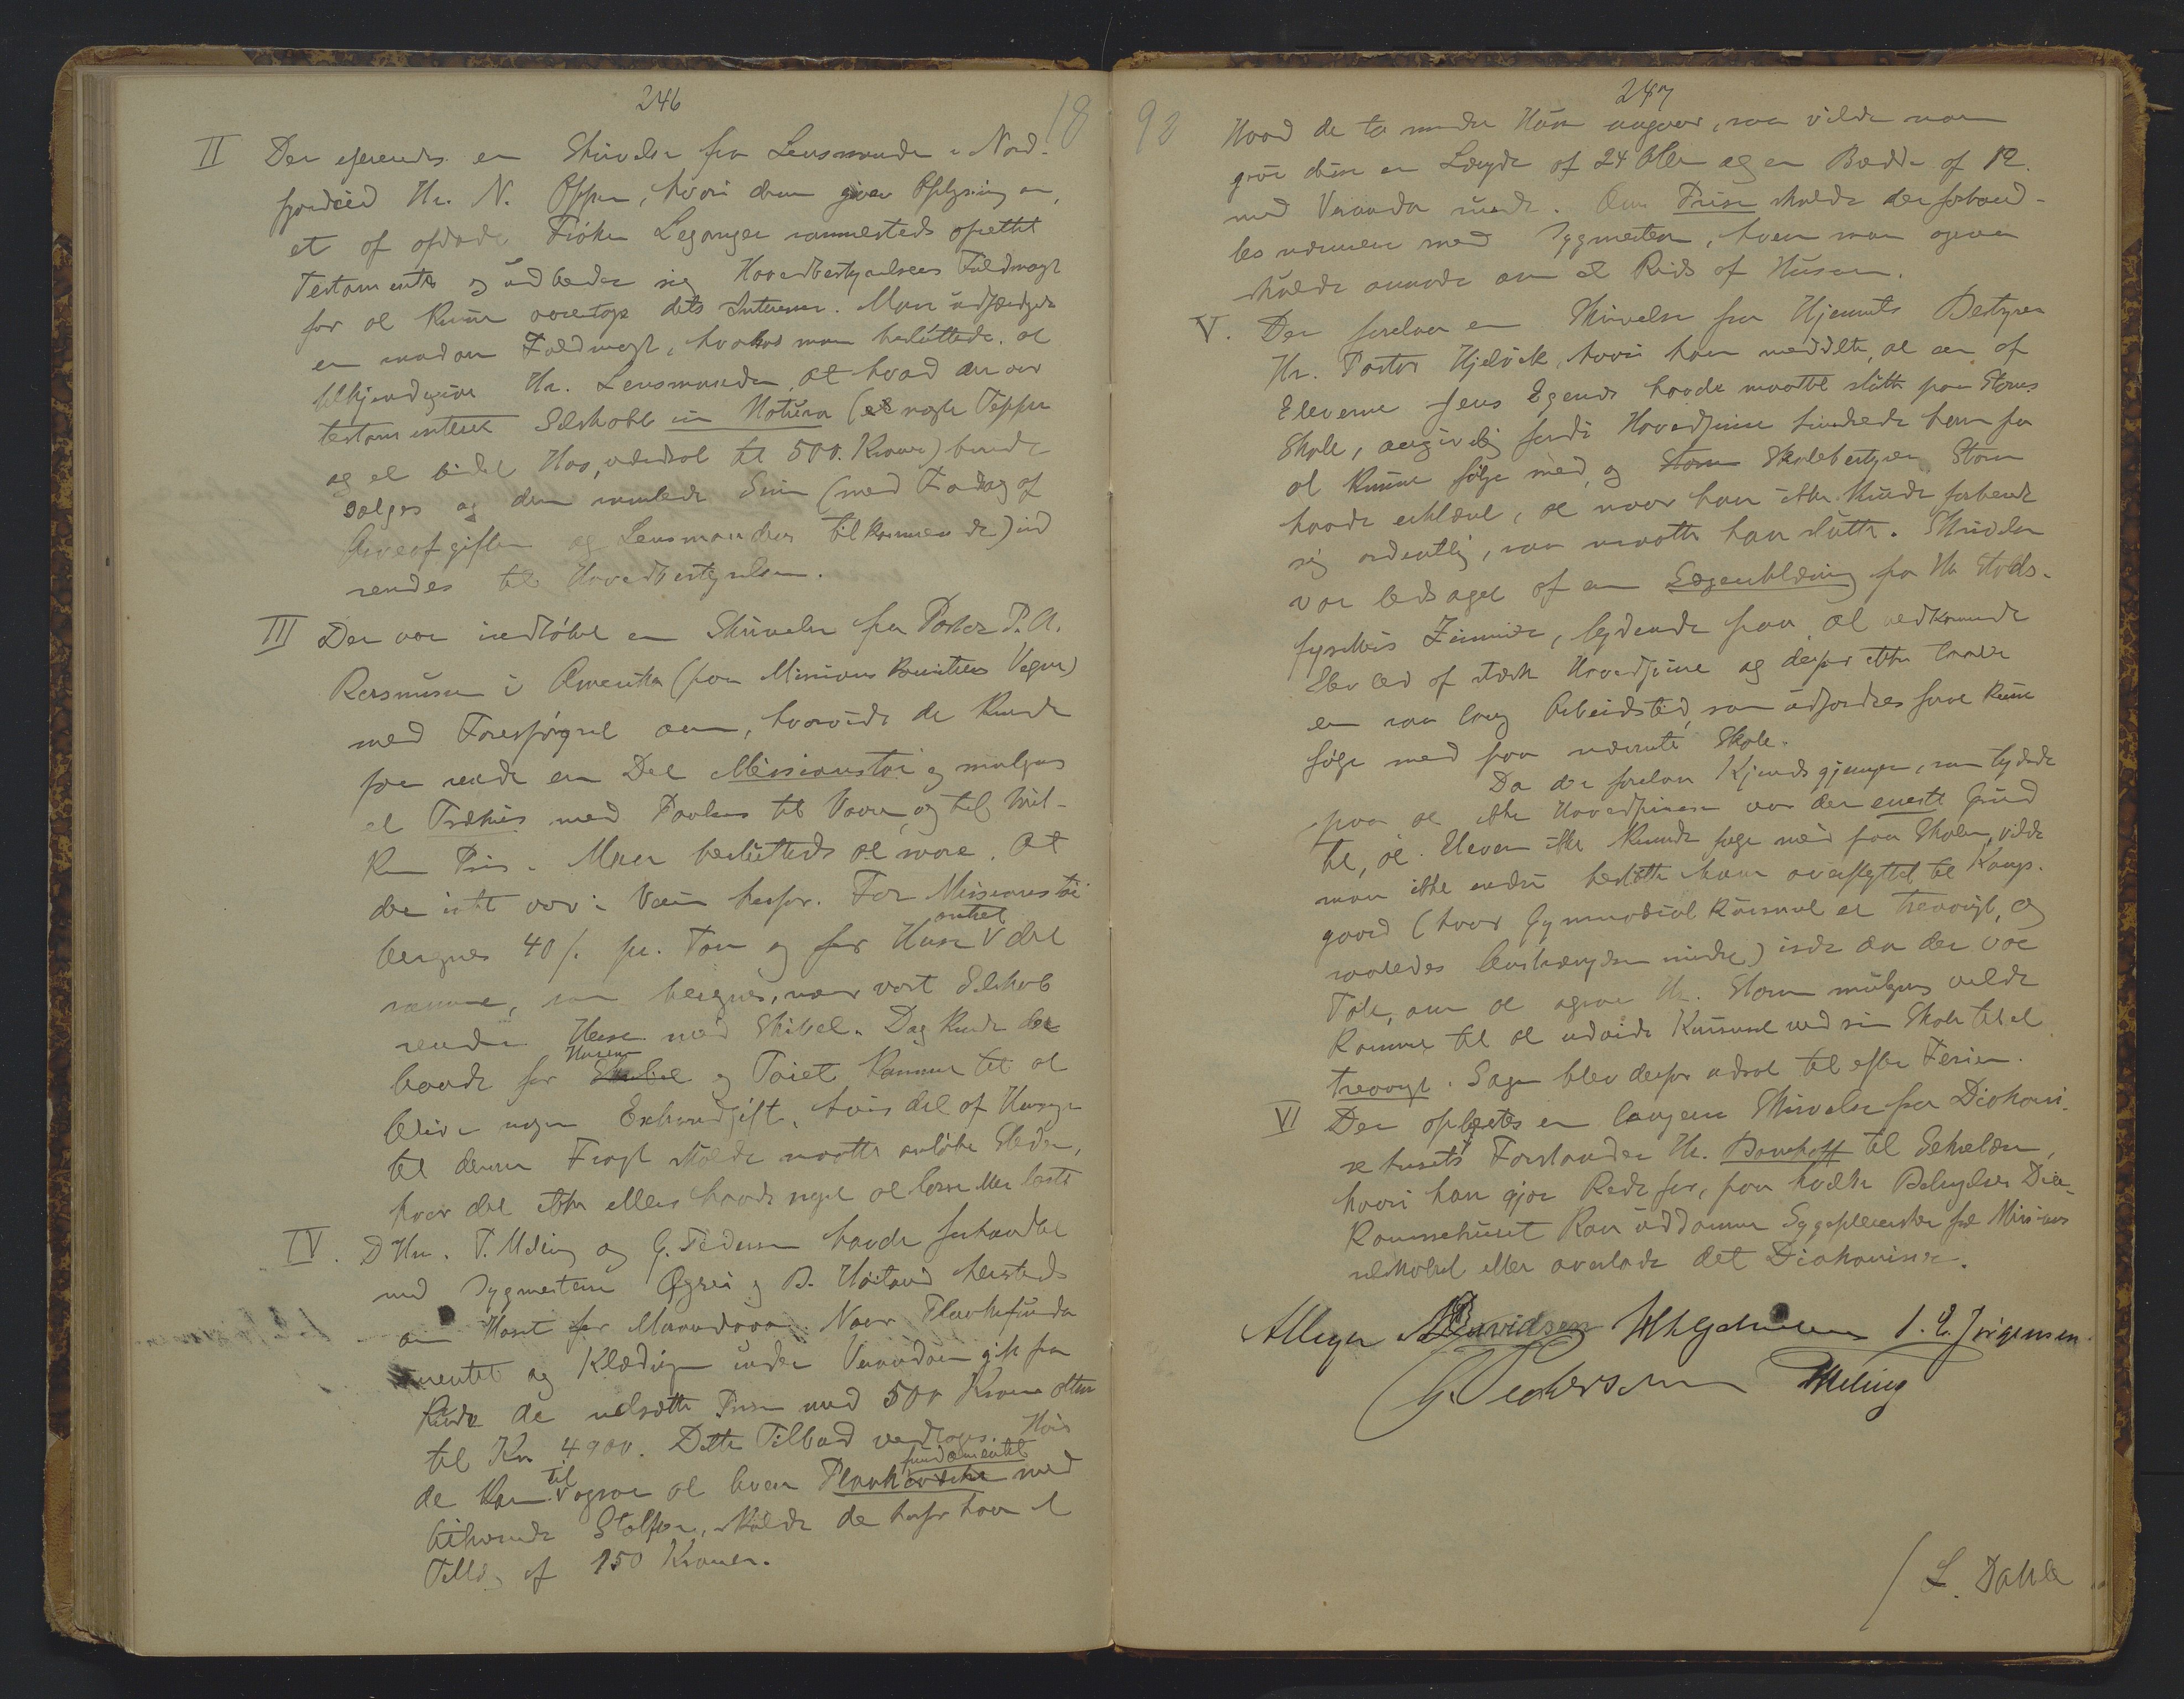 246
18
II Der refereredes en Skrivelse fra Lensmanden i Nord-
fjordeid Hr. N. Oppen, hvori denne giver Oplysning om
et af afdøde Frøken Leganger sammesteds oprettet
Testamente og udbeder sig Hovedbestyrelsens Fuldmagt
for at kunne varetage dets Interesser. Man udfærdigede
en saadan Fuldmagt, hvorhos man besluttede at
tilkjendegive Hr. Lensmanden, at hvad der var
testamenteret Selskabet in Natura (et nogle Tepper
og et lidet Hus, vurderet til 500 Kroner) burde
sælges og den samlede Sum (med Fradrag af
Arveafgiften og Lensmanden tilkommende) ind
sendes til Hovedbestyrelsen.
III Der var indløbet en Skrivelse fra Pastor P. A.
Rasmusen i Amerika (paa Missions Komiteens Vegne)
med Forespørgsel om, hvorvidt de kunde
faa sende en Del Missionstøi og muligens
et Træhus med Posten til Vaaren og til hvil-
ken Pris. Man besluttede at svare, at
der intet var i Veien herfor. For Missionstøi
beregnes 40/. pr. Ton og for Huset antal det
samme, som beregnes, naar vort Selskab
sender Huse med Skibet. Dog kunde der
baade for Skibet Husene og Tøiet komme til at
blive nogen Extraudgift, hvis det af Hensyn
til denne Fragt skulde maatte anløbe Steder,
hvor det ikke ellers havde noget at losse eller laste
IV. D'Hrr. T. Meling og G. Pedersen havde forhandlet
med Bygmestern Øgrei og B. Høiland hersteds
om Huset for Marandara. Naar Plankefunda
mentet og Klædningen under Verandaen gik fra
kunde de nedsætte Prisen med 500 Kroner altsaa
til Kr. 4900. Dette Tilbud vedtoges. Hvis
de kom til ogsaa at levere Plankeverket fundamentet med
tilhørende Stolper, skulde de herfor have et
Tillæg af 150 Kroner.
92
247
Hvad de to mindre Huse angaar, saa vilde man
give disse en Længde af 24 Alen og en Bredde af 12
med Veranda under. Om Prisen skulde der forhand-
les nærmere med Bygmesteren, hvem man ogsaa
skulde anmode om et Rids af Husene.
V. Der forelaa en Skrivelse fra Hjemmets Bestyrer
Hr. Pastor Hjelvik, hvori han meddelte, at en af
Eleverne Jens Egenes havde maattet slutte paa Storms
Skole, angivelig fordi Hovedpine hindrede ham fra
at kunne følge med, og Storm Skolebestyrer Storm
havde erklæret, at naar han ikke kunde forberede
sig ordentlig, saa maatte han slutte. Skrivelsen
var ledsaget af en Lægeerklæring fra Hr. Stads-
fysikus Zimmer, lydende paa, at vedkommende
Elev led af stærk Hovedpine og derfor ikke taalte
en saa lang Arbeidstid, som udfordres for at kunne
følge med paa nævnte Skole.
Da der forelaa Kjendsgjerninger, som tydede
paa at ikke Hovedpinen var den eneste Grund
til, at Eleven ikke kunde følge med paa Skolen, vilde
man ikke endnu beslutte ham overflyttet til Kongs-
gaard (hvor Gymnasialkursuset er treaarigt, og
saaledes Anstrængelsen mindre) især da der var
Tale om at ogsaa Hr. Storm muligens vilde
komme til at udvide Kursuset ved sin Skole til et
treaarigt. Sagen blev derfor udsat til efter Ferien.
VI Der oplæstes en længere Skrivelse fra Diakoni-
sehusets Forstander Hr. Bomhoff til Sekretæren,
hvori han gjør Rede for, paa hvilke Betingelser Dia-
konissehuset kan uddanne Sygeplejersker for Missions
selskabet eller overlade det Diakonisser.
A Meyer A Davidsen I. E. Jørgensen
G. Pedersen TMeling
/ L. Dahle